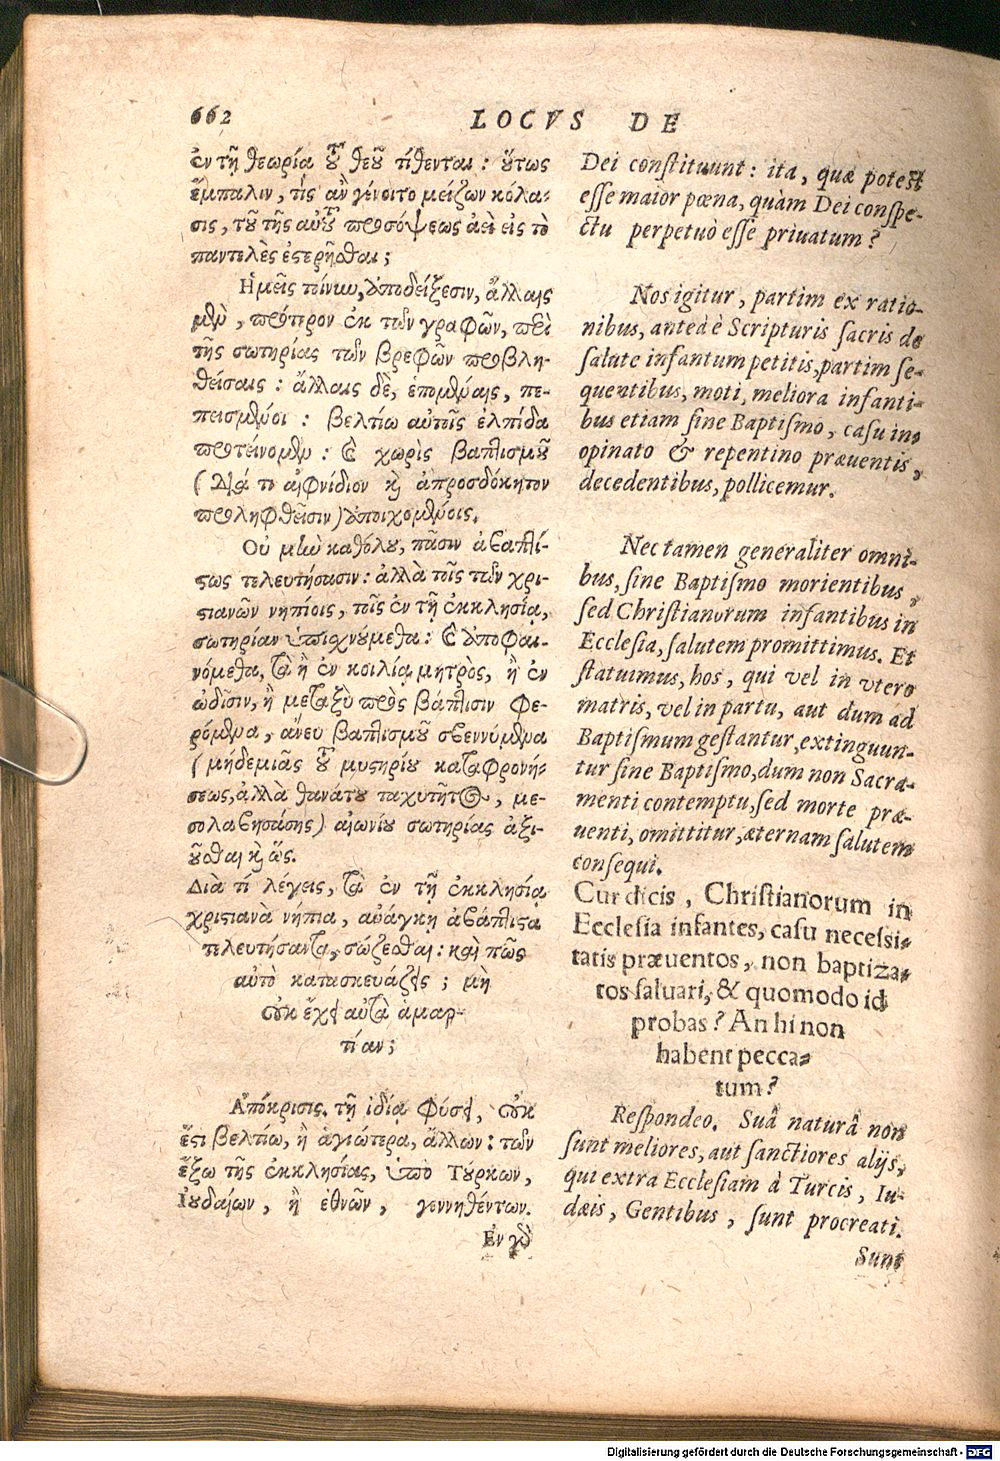 662 LOCVS DE
ἐν τῇ θεωρίᾳ τοῦ θεοῦ τίθενται : οὕτως
ἔμπαλιν, τίς ἂν γένοιτο μείζων κόλα-
σις, τοῦ τῆς αὐτοῦ προσόψεως ἀεὶ εἰς τὸ
παντελὲς ἐστερῆσθαι ;
Ἡμεῖς τοίνυν, ἀποδείξεσιν, ἄλλαις
μὲν, πρότερον ἐκ τῶν γραφῶν, περὶ
τῆς σωτηρίας τῶν βρεφῶν προβλη-
θείσαις : ἄλλαις δὲ, ἑπομέναις, πε-
πεισμένοι : βελτίω αὐτοῖς ἐλπίδα
προτείνομεν : καὶ χωρὶς βαπτισμοῦ
(διά το αἰφνίδιον καὶ ἀπροσδόκητον
προληφθεῖσιν) ἀποιχομένοις.
Οὐ μὴν καθόλου, πᾶσιν ἀβαπτί-
στως τελευτήσασιν : ἀλλὰ τοῖς τῶν χρι-
στιανῶν νηπίοις, τοῖς ἐν τῇ ἐκκλησίᾳ,
σωτηρίαν ὑπισχνούμεθα : καὶ ἀποφαι-
νόμεθα, τὰ ἢ ἐν κοιλίᾳ μητρὸς, ἢ ἐν
ὠδῖσιν, ἢ μεταξὺ πρὸς βάπτισιν φε-
ρόμενα, ἄνευ βαπτισμοῦ σβεννύμενα
(μήδεμιᾶς τοῦ μυστηρίου καταφρονή-
σεως, ἀλλὰ θανάτου ταχυτῆτος, με-
σολαβησάσης) αἰωνίου σωτηρίας ἀξι-
οῦσθαι καὶ ὥς.
Διὰ τί λέγεις, τὰ ἐν τῇ ἐκκλησίᾳ
χριστιανὰ νήπια, ἀνάγκῃ ἀβάπτιστα
τελευτήσαντα, σώζεσθαι : καὶ πῶς
αὐτὸ κατασκευάζεις ; μὴ
οὐκ ἔχει αὐτὰ ἁμαρ-
τίαν ;
Ἀπόκρισις. τῇ ἰδίᾳ φύσει, οὐκ
ἔστι βελτίω, ἢ ἁγιώτερα, ἄλλων : τῶν
ἔξω τῆς ἐκκλησίας, ὑπὸ Τύρκων,
Ἰουδαίων, ἢ ἐθνῶν, γεννηθέντων.
Ἐν γὰρ
Dei constituunt : ita, quæ potest
esse maior pœna, quàm Dei conspe-
ctu perpetuò esse priuatum ?
Nos igitur, partim ex ratio-
nibus, antea è Scripturis sacris de
salute infantum petitis, partim se-
quentibus, moti, meliora infanti-
bus etiam sine Baptismo, casu ino
opinato & repentino præuentis,
decedentibus, pollicemur.
Nec tamen generaliter omni-
bus, sine Baptismo morientibus,
sed Christianorum infantibus in
Ecclesia, salutem promittimus. Et
statuimus, hos, qui vel in vtero
matris, vel in partu, aut dum ad
Baptismum gestantur, extinguun-
tur sine Baptismo, dum non Sacra-
menti contemptu, sed morte præ-
uenti, omittitur, æternam salutem
consequi.
Cur dicis, Christianorum in
Ecclesia infantes, casu necessi-
tatis præuentos, non baptiza-
tos saluari, & quomodo id
probas ? An hi non
habent pecca-
tum ?
Respondeo. Suâ naturâ non
sunt meliores, aut sanctiores alijs,
qui extra Ecclesiam à Turcis, Iu-
dæis, Gentibus, sunt procreati.
Sunt
Digitalisierung gefördert durch die Deutsche Forschungsgemeinschaft - DFG